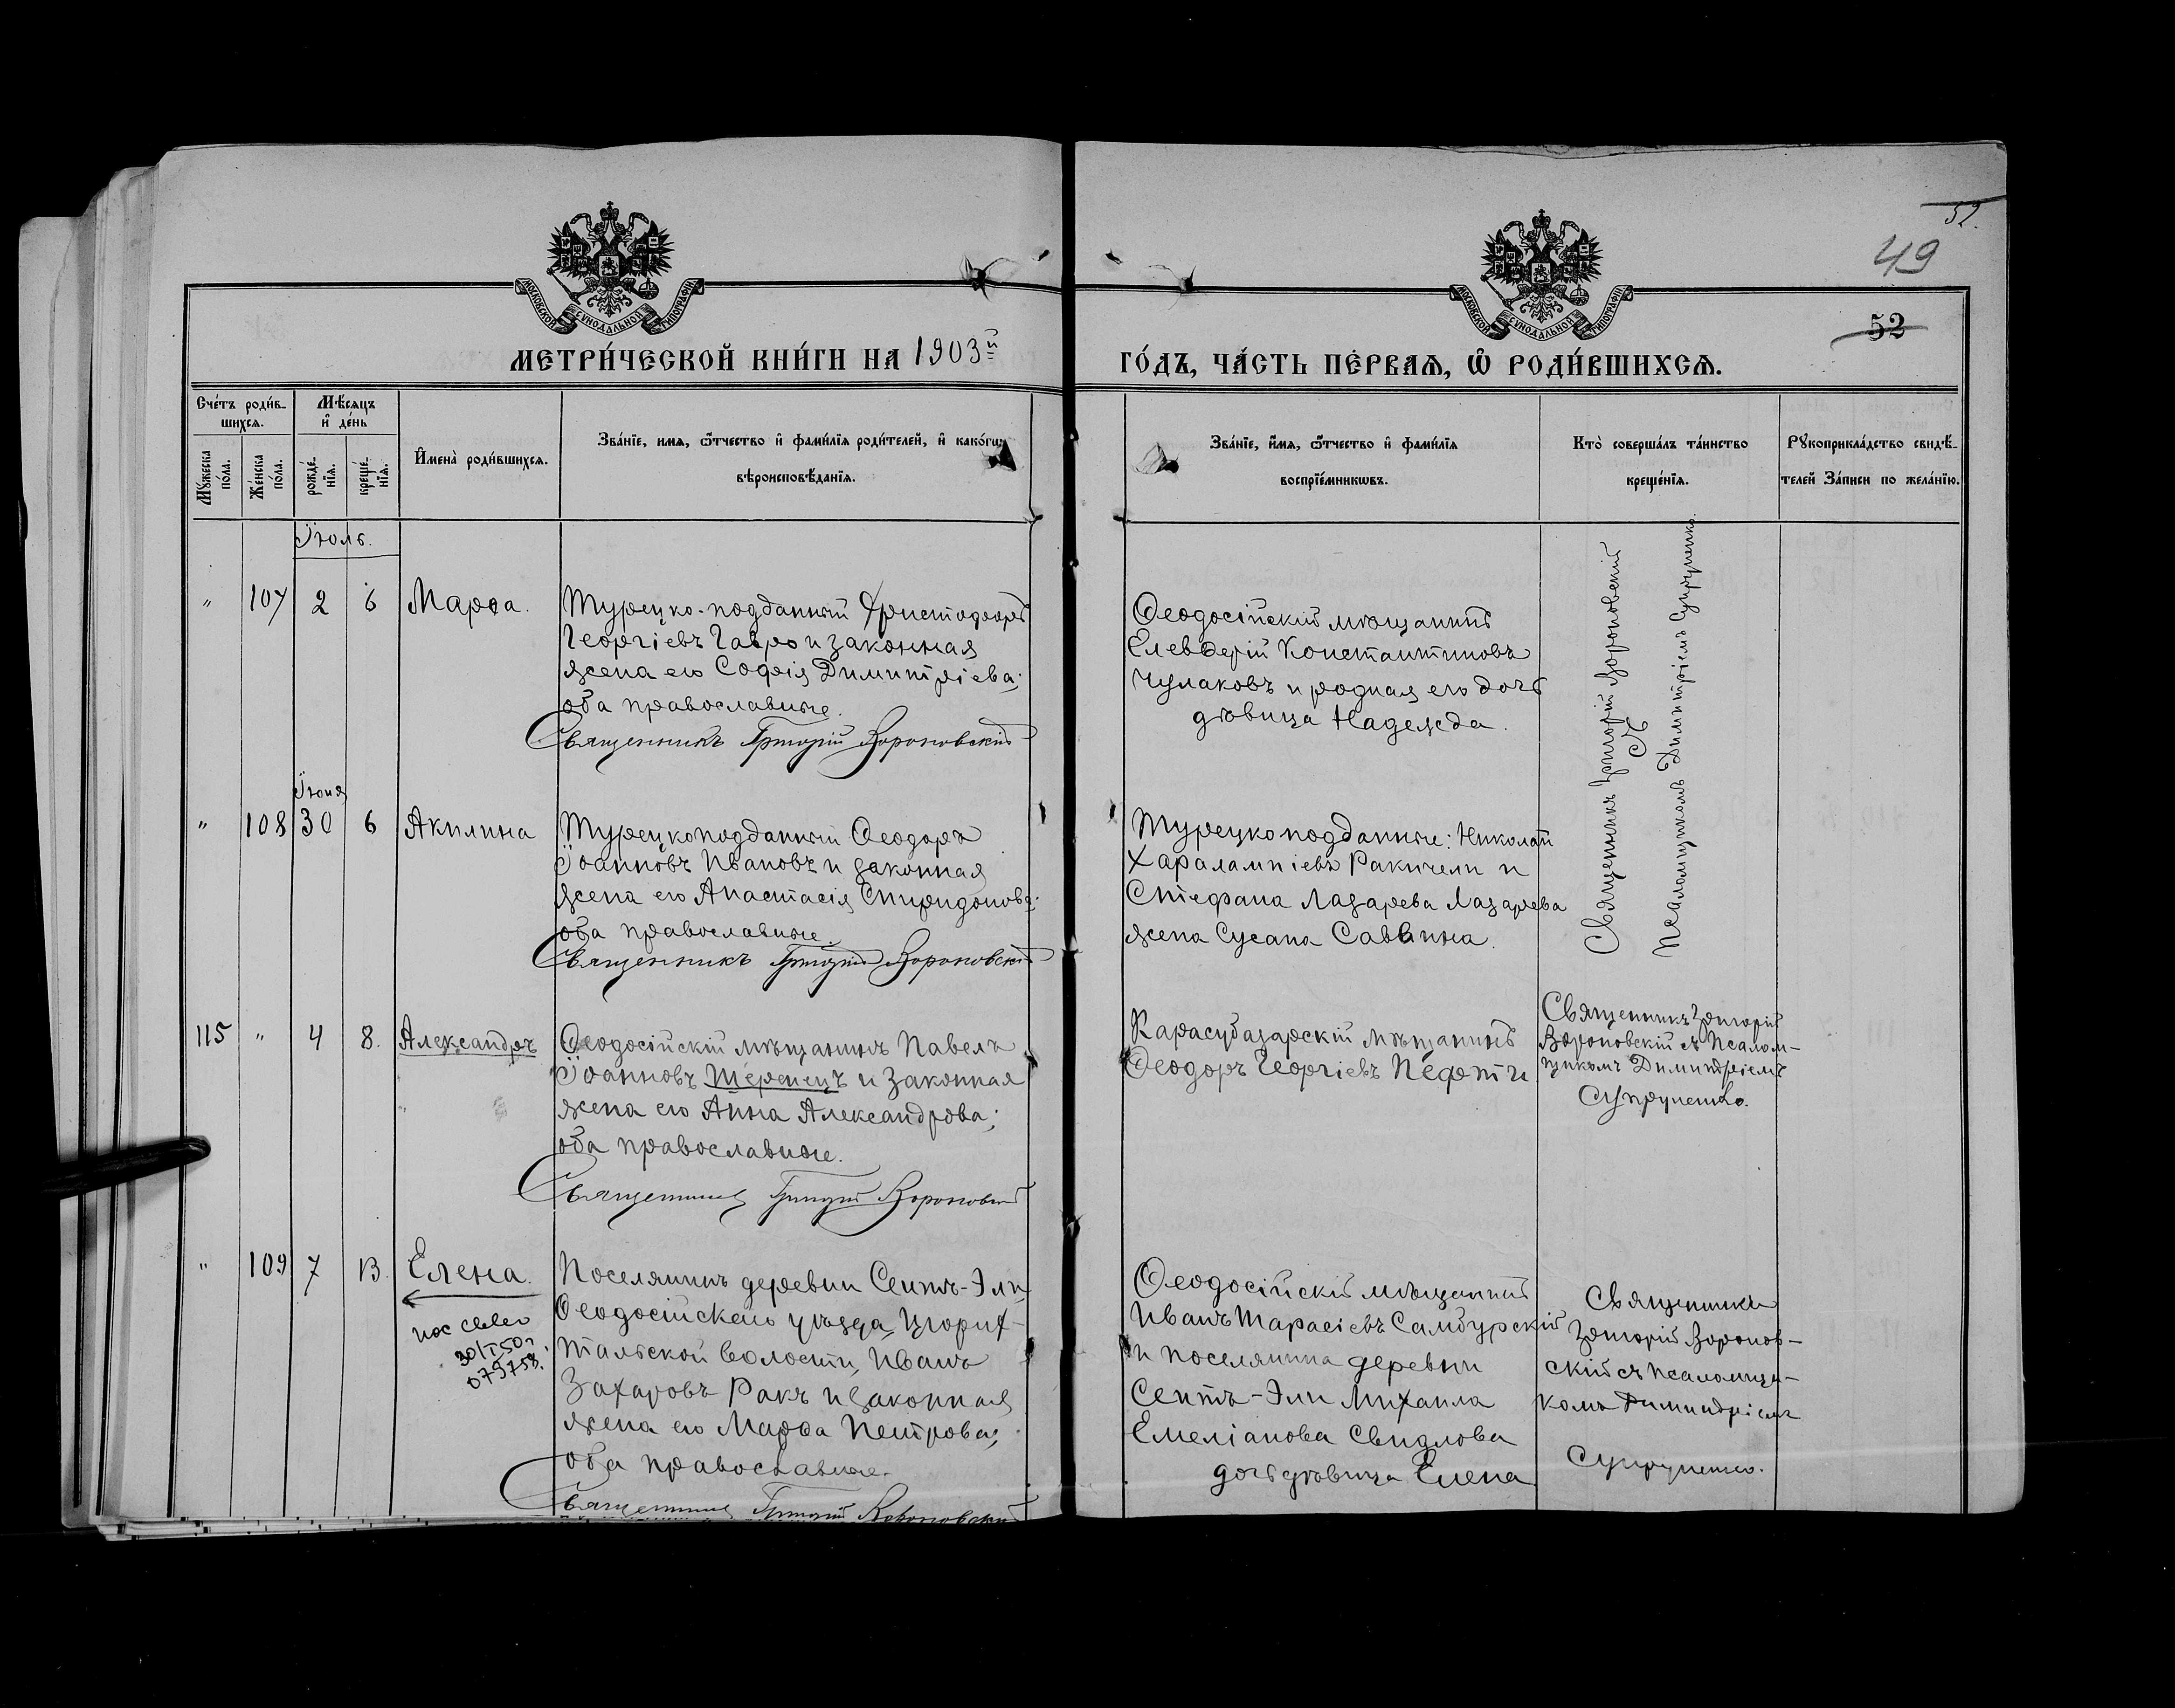 52.
49
52
МОСКОВСКОЙ СѴНОДАЛЬНОЙ ТИПОГРАФІИ
МОСКОВСКОЙ СѴНОДАЛЬНОЙ ТИПОГРАФІИ
МЕТРИ́ЧЕСКОЙ КНИ́ГИ НА 1903й
ГО́ДЪ, ЧА́СТЬ ПЕ́РВАѦ, Ѿ РОДИ́ВШИХСѦ.
Сче́тъ роди́в-
шихсѧ.
Мꙋ́жеска
по́ла.
Же́нска
по́ла.
Мѣ́сѧцъ
и҆ де́нь
рожде́-
нїѧ.
креще́-
нїѧ.
И҆мена̀ роди́вшихсѧ.
Зва́нїе, имѧ, ѻ҆́тчество и҆ фами́лїѧ роди́телей, и҆ како́гѡ
вѣроисповѣ́данїѧ.
Зва́нїе, и҆́мѧ, ѻ҆́тчество и҆ фами́лїѧ
воспрїе́мникѡвъ.
Кто̀ соверша́лъ та́инство
креще́нїѧ.
Рꙋкоприкла́дство свидѣ́-
телей За́писи по жела́нїю.
Іюль.
" 107 2 6 Марѳа.
Турецко-подданный Христофоръ
Георгіевъ Гавро и законная
жена его Софія Димитріева;
оба православные.
Священникъ Григорій Вороновскій
Ѳеодосійскій мѣщанинъ
Елевѳерій Константиновъ
Чулаковъ и родная его дочь
дѣвица Надежда.
Священникъ Григорій Вороновскій
съ
Псаломщикомъ Димитріемъ Супруненко.
Іюня
" 108 30 6 Акилина
Турецкоподданный Ѳеодоръ
Іоанновъ Ивановъ и законная
жена его Анастасія Спиридонова;
оба православные.
Священникъ Григорій Вороновскій
Турецкоподданные: Николай
Харалампіевъ Ракичели и
Стефана Лазарева Лазарева
жена Сусана Саввина.
115 " 4 8. Александръ
Ѳеодосійскій мѣщанинъ Павелъ
Іоанновъ Шеремецъ и законная
жена его Анна Александрова;
оба православные.
Священникъ Григорій Вороновскій
Карасубазарскій мѣщанинъ
Ѳеодоръ Георгіевъ
Священникъ Григорій
Вороновскій съ Псалом-
щикомъ Димитріемъ
Супруненко.
" 109 7 13. Елена.
30/I 50г.
079758.
Поселянинъ деревни Сеитъ-Эли
Ѳеодосійскаго уѣзда, Цюрих-
тальской волости, Иванъ
Захаровъ Ракъ и законная
жена его Марѳа Петрова;
оба православные.
Священникъ Григорій Вороновскій
Ѳеодосійскій мѣщанинъ
Иванъ Тарасіевъ Самбурскій
и поселянина деревни
Сеитъ-Эли Михаила
Емеліанова Свидлова
дочь дѣвица Елена
Священникъ
Григорій Воронов-
скій съ псаломщи-
комъ Димитріемъ
Супруненко.